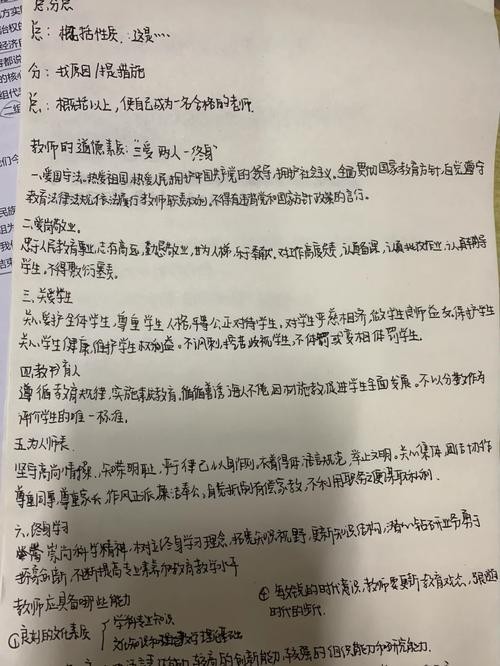 总分总
总：概括性质，这是……
分：找原因/提措施
总：概括以上，使自己成为一名合格的老师.
教师的道德素质：三爱两人一终身
一、爱国守法。热爱祖国,热爱人民,拥护中国共产党的领导,拥护社会主义。全面贯彻国家教育方针,自觉遵守
教育法律法规,依法履行教师职责权利。不得有违背党和国家方针政策的言行。
二、爱岗敬业。
忠于人民教育事业,志存高远,勤恳敬业,甘为人梯,乐于奉献。对工作高度负责,认真备课,认真批改作业,认真辅导
学生。不得敷衍塞责。
三、关爱学生
关心爱护全体学生,尊重学生人格,平等公正对待学生,对学生严慈相济,做学生良师益友。保护学生
关心学生健康,维护学生权利益。不讽刺、挖苦歧视学生,不体罚或变相体罚学生。
四、教书育人
遵循教育规律,实施素质教育。循循善诱,诲人不倦,因材施教,促进学生全面发展。不以分数作为
评价学生的唯一标准。
五、为人师表
坚守高尚情操,知荣明耻,严于律己,以身作则,衣着得体,语言规范,举止文明。关心集体,团结协作
尊重同事,尊重家长,作风正派,廉洁奉公,自觉抵制有偿家教,不利用职务之便谋取私利.
六、终身学习
崇尚科学精神,树立终身学习理念,拓宽知识视野,更新知识结构,潜心钻研业务,勇于
探索创新,不断提高专业素养和教育教学水平
教师应具备哪些能力
④ 与时代意识,教师要更新教育观念,跟随
时代的步伐.
①良好的文化素质 学科专业知识
文化知识和教育理论基础
较高的创新能力,较强的组织能力和研究能力.